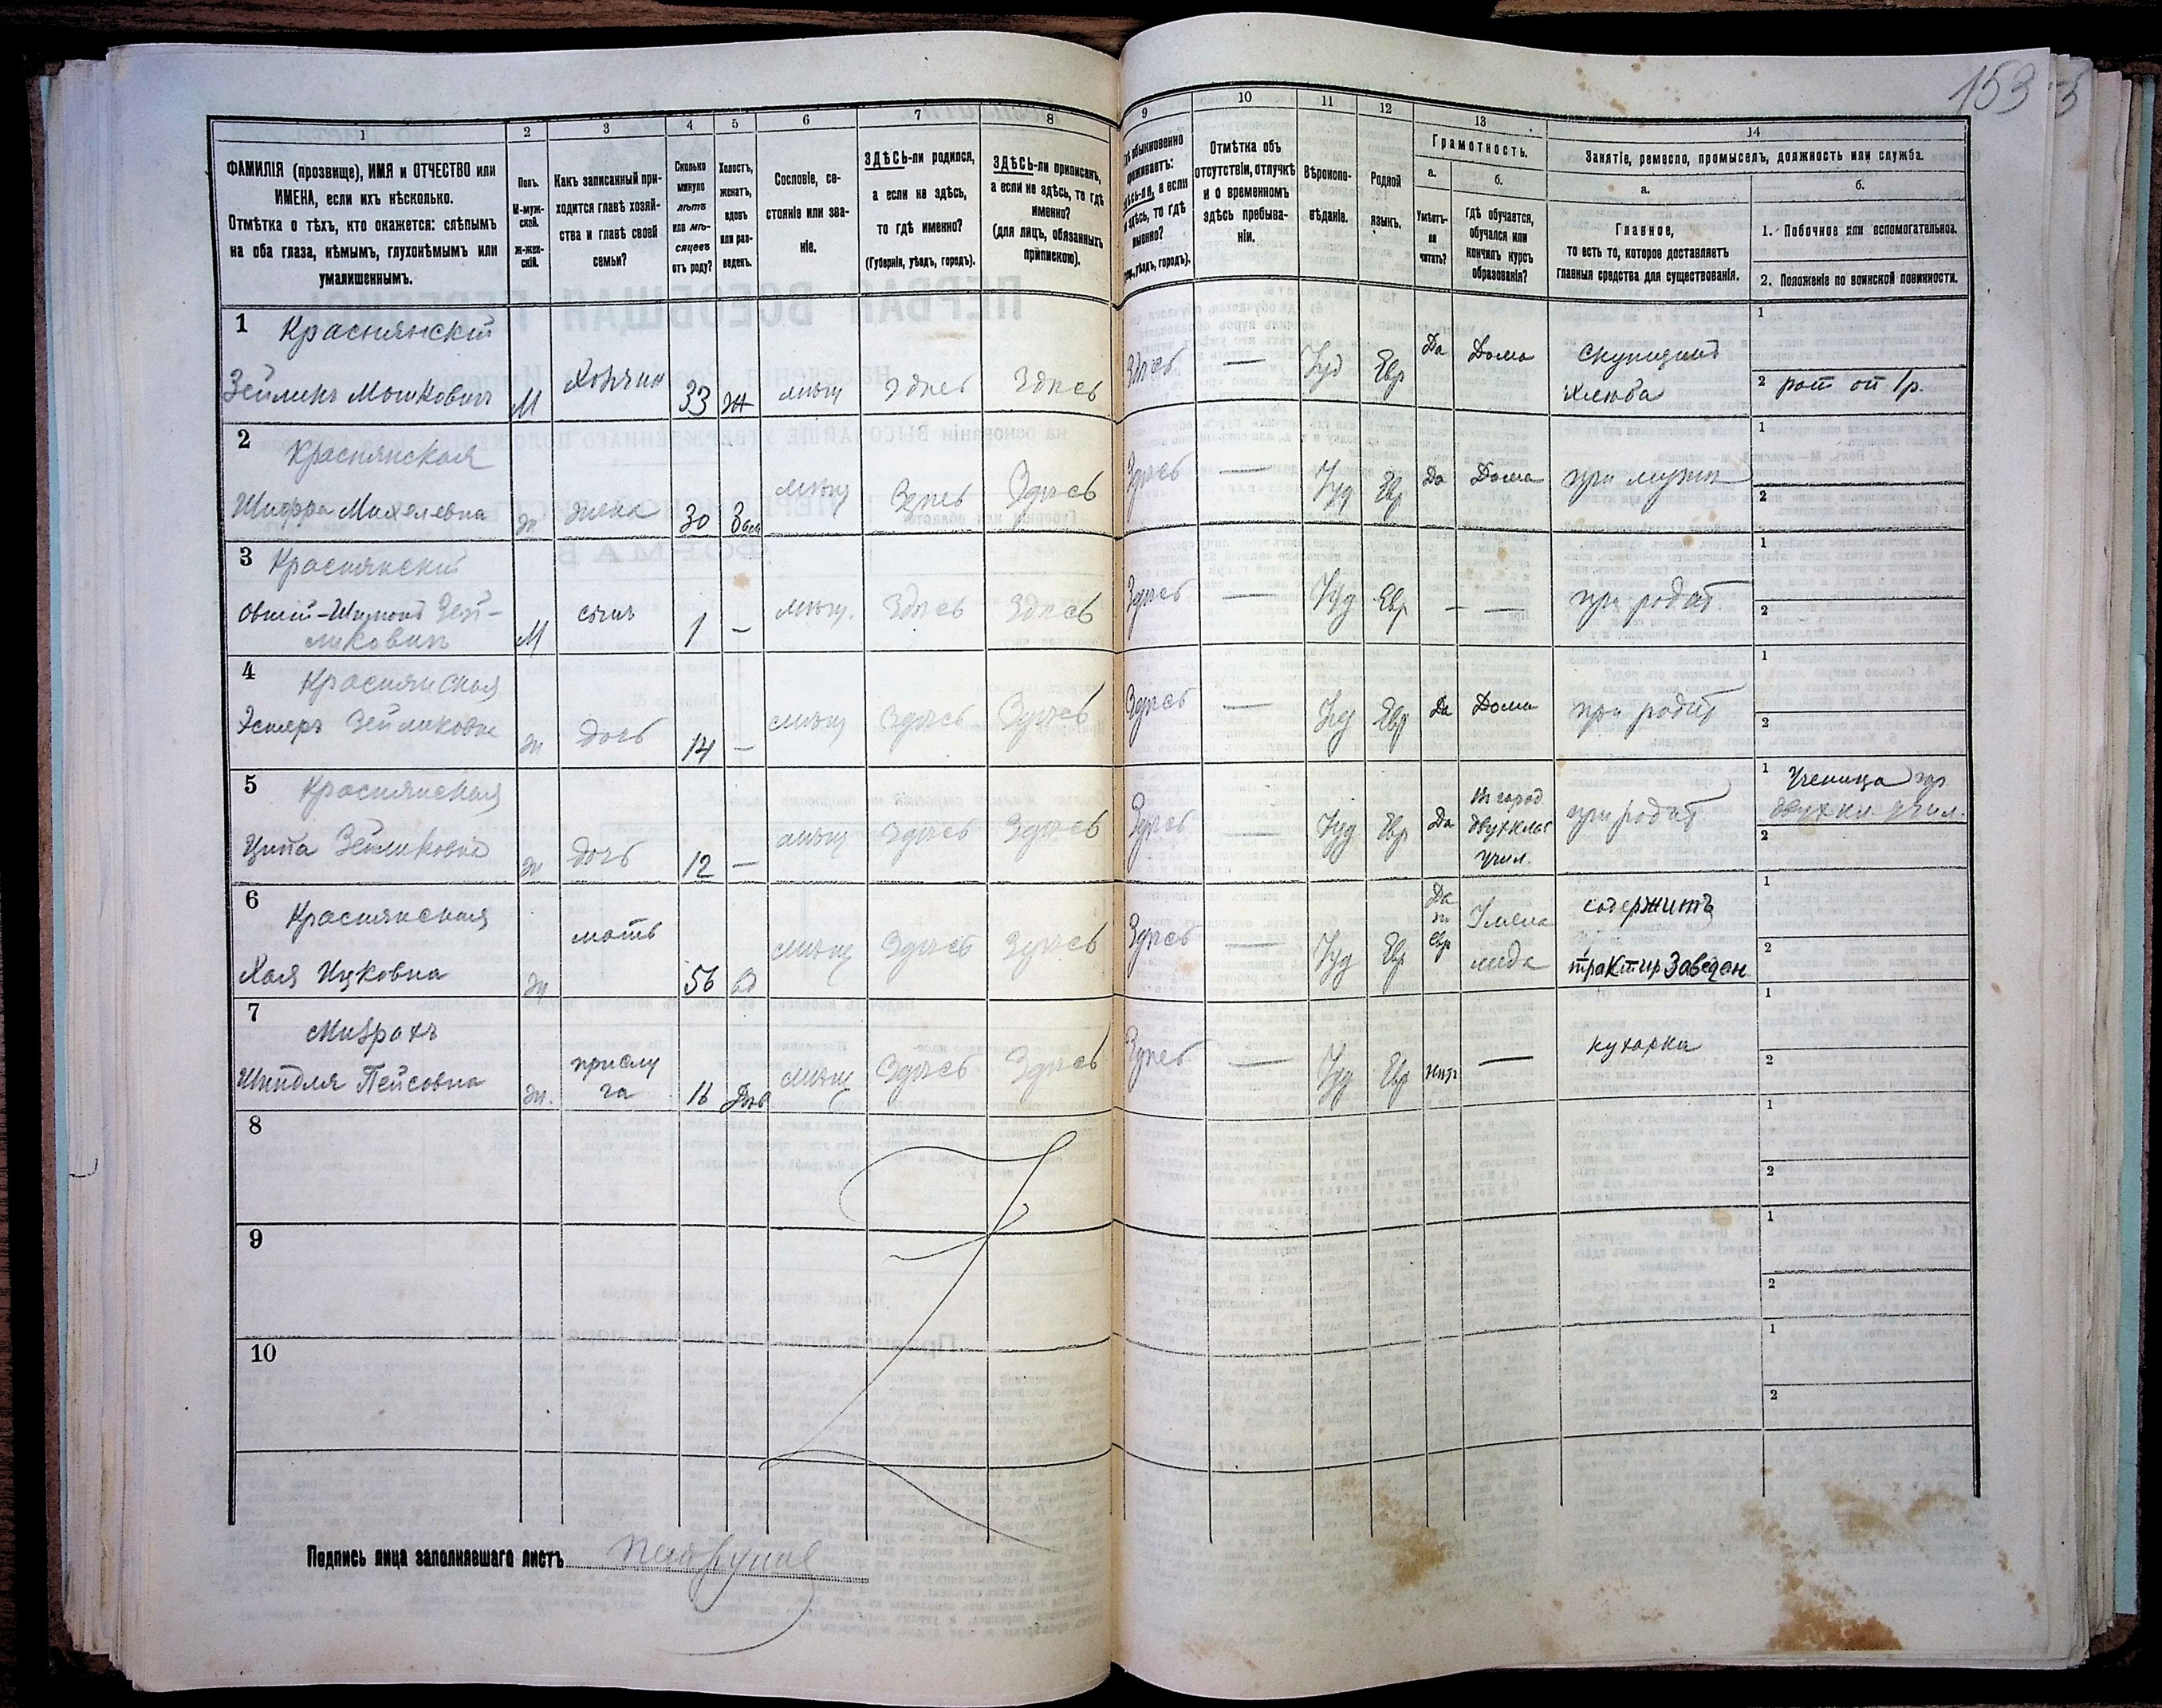 153
1
2
3
4
5
6
7
8
9
10
11
12
13
14
ФАМИЛІЯ (прозвище), ИМЯ и ОТЧЕСТВО или
ИМЕНА, если ихъ нѣсколько.
Отмѣтка о тѣхъ, кто окажется: слѣпымъ
на оба глаза, нѣмымъ, глухонѣмымъ или
умалишеннымъ.
Полъ.
М-муж-
ской.
Ж-жен-
скій.
Какъ записанный при-
ходится главѣ хозяй-
ства и главѣ своей
семьи?
Сколько
минуло
лѣтъ
или мѣ-
сяцевъ
отъ роду?
Холостъ,
женатъ,
вдовъ
или раз-
веденъ.
Сословіе, со-
стояніе или зва-
ніе.
ЗДѢСЬ-ли родился,
а если не здѣсь,
то гдѣ именно?
(Губернія, уѣздъ, городъ).
ЗДѢСЬ-ли приписанъ,
а если не здѣсь, то гдѣ
именно?
(для лицъ, обязанныхъ
припискою).
обыкновенно
проживаетъ:
здѣсь-ли, а если
не здѣсь, то гдѣ
именно?
уѣздъ, городъ).
Отмѣтка объ
отсутствіи, отлучкѣ
и о временномъ
здѣсь пребыва-
ніи.
Вѣроиспо-
вѣданіе.
Родной
языкъ.
Грамотность.
а.
Умѣетъ-
ли
читать?
б.
гдѣ обучается,
обучался или
кончилъ курсъ
образованія?
Занятіе, ремесло, промыселъ, должность или служба.
а.
Главное,
то есть то, которое доставляетъ
главныя средства для существованія.
б.
1. Побочное или вспомогательное.
2. Положеніе по воинской повинности.
1 Краснянскій
Зейликъ Мошковичъ М Хозяинъ 33 Ж мѣщ Здѣсь Здѣсь Здѣсь — Іуд Евр Да Дома
хлѣба
1
2 рат от 1р.
2 Краснянская
Шифра Михелевна ж жена 30 Зам мѣщ Здѣсь Здѣсь Здѣсь — Іуд Евр Да Дома при мужѣ
1
2
3 Краснянскій
Зей-
ликовичъ М сынъ 1 — мѣщ. Здѣсь Здѣсь Здѣсь — Іуд Евр — — при родит
1
2
4 Краснянская
Эстеръ Зейликовна ж дочь 14 — мѣщ Здѣсь Здѣсь Здѣсь — Іуд Евр Да Дома при родит
1
2
5 Краснянская
Ципа Зейликовна ж дочь 12 — мѣщ Здѣсь Здѣсь Здѣсь — Іуд Евр Да
Въ город
двухклас
учил.
при родит
1 Ученица гор
двухкл. учил.
2
6 Краснянская
Хая Ицковна ж мать 56 вд мѣщ Здѣсь Здѣсь Здѣсь — Іуд Евр
Да
по
евр
содержитъ
трактир Заведен
1
2
7
Шпидля Пейсовна ж. прислу
га 16 Дѣв мѣщ Здѣсь Здѣсь Здѣсь — Іуд Евр нѣт — кухарка
1
2
8
1
2
9
1
2
10
1
2
Подпись лица заполнявшаго листъ